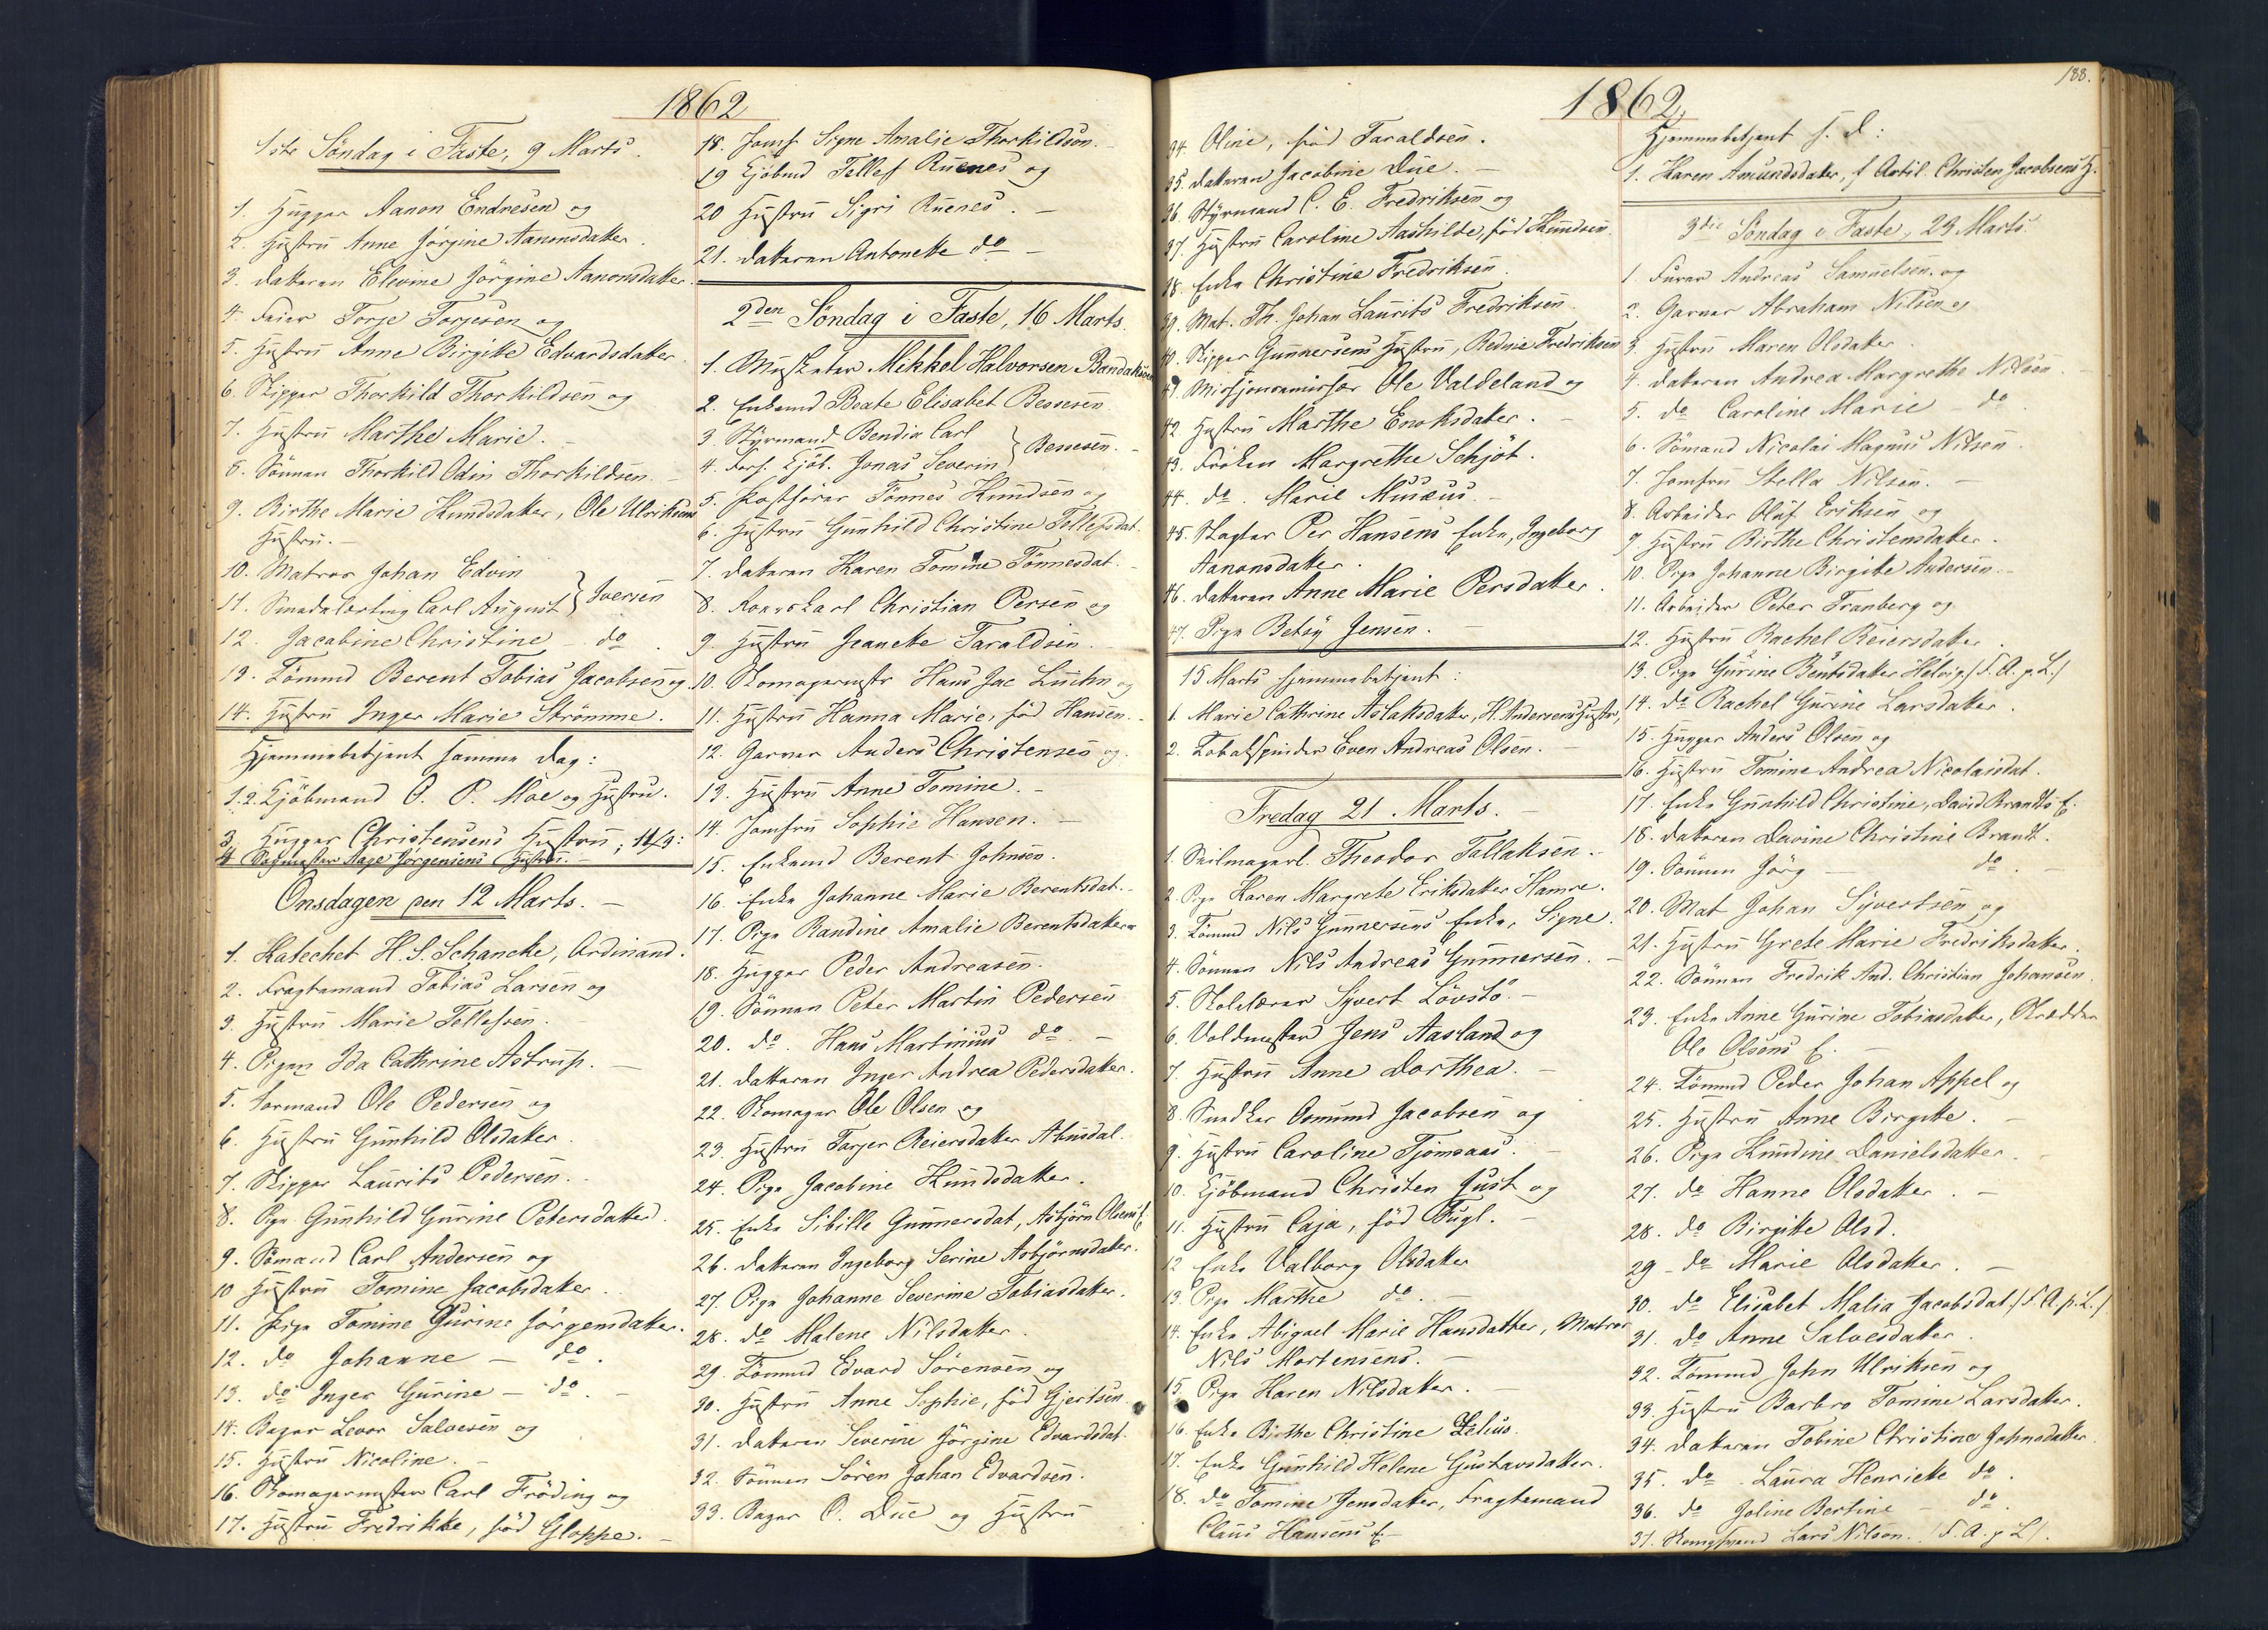 1862
1ste Søndag i Faste, 9 Marts.
1. Hugger Aanon Endresen og
2. Hustru Anne Jørgine Aanonsdatter.
3. Datteren Elevine Jörgine Aanonsdatter.
4. Feier Torje Torjesen og
5. Hustru Anne Birgitte Edvardsdatter
6. Skipper Thorkild Thorkildsen og
7. Hustru Marthe Marie. –
8. Sönnen Thorkild Odin Thorkildsen. –
9. Birthe Marie Knudsdatter, Ole Ulriksens
Hustru. –
10. Matros Johan Edvin
11. Smedelærling Carl August } Iversen
12. Jacobine Christine – do.
13. Tömmd Berent Tobias Jacobsen og
14. Hustru Inger Marie Strömme.
Hjemmebetjent samme Dag:
1.2. Kjöbmand O. P. Moe og Hustru.
3. Hugger Christensens Hustru, 11/3:
4. Aage Jørgensens Hustru. –
Onsdagen den 12 Marts. –
1. Katechet H. S. Schancke, Ordinand.
2. Fragtemand Tobias Larsen og
3. Hustru Marie Tellefsen. –
4. Pigen Ida Cathrine Astrup. –
5. Formand Ole Pedersen og
6. Hustru Gunhild Olsdatter.
7. Skipper Laurits Pedersen.
8. Pige Gunhild Gurine Petersdatter.
9. Sömand Carl Andersen og
10 Hustru Tomine Jacobsdatter.
11. Pige Tomine Gurine Jörgensdatter.
12. do Johanne – do.
13. do Inger Gurine – do. –
14. Bager Levor Salvesen og
15. Hustru Nicoline. –
16. Skomagermester Carl Fröding og
17. Hustru Fredrikke, född Gloppe. –
18. Jomf Signe Amalie Thorkildsen. –
19 Kjöbmd Tellef Ruenes og
20 Hustru Sigri Ruenes. –
21. Datteren Antonette do –
2den Söndag i Faste, 16 Marts.
1. Musketer Mikkel Halvorsen Bandaksen
2. Enkemd Beate Elisabet Bessesen
3. Styrmand Bendix Carl
4. Forf. Kjöb. Jonas Severin } Bessesen. –
5. Postförer Tönnes Knudsen og
6. Hustru Gunhild Christine Tellefsdat.
7. Datteren Karen Tomine Tönnesdat.
8. Rorskarl Christian Persen og
9. Hustru Jeanette Taraldsen.
10. Skomagermstr Hans Jac og
11. Hustru Hanna Marie, född Hansen. –
12. Garver Anders Christensen og
13. Hustru Anne Tomine. –
14. Jomfru Sophie Hansen. –
15. Enkemd Berent Johnsen.
16. Enke Johanne Marie Berentsdat. –
17. Pige Randine Amalie Berentsdatter
18. Hugger Peder Andreasen.
19. Sönnen Peter Martin Pedersen
20. do. Hans Martinius do. –
21. Datteren Inger Andrea Pedersdatter.
22. Skomager Ole Olsen og
23. Hustru Tarjer Reiersdatter Abusdal.
24. Pige Jacobine Knudsdatter.
25. Enke Sibille Gunnersdat, Asbjörn Olsens E.
26. Datteren Ingeborg Serine Asbjörnsdatter.
27. Pige Johanne Severine Tobiasdatter.
28. do Malene Nilsdatter.
29. Tömmd Edvard Sörensen og
30. Hustru Anne Sophie, född Gjertsen.
31. Datteren Severine Jörgine Edvardsdat.
32. Sönnen Sören Johan Edvardsen.
33. Bager O. Due og Hustru
188.
1862
34. Oline, född Taraldsen.
35. Datteren Jacobine Due. –
36. Styrmand C. E. Fredriksen og
37. Hustru Caroline Aashilde, född Knudsen.
38. Enke Christine Fredriksen.
39. Mat. Th. Johan Laurits Fredriksen
40. Skipper Gunnersens Hustru, Fredriksen
41. Misjonsemissær Ole Valdeland og
42. Hustru Marthe Enoksdatter. –
43. Fröken Margrethe Schjöt.
44. do. Marie Musæus. –
45. Slagter Per Hansens Enke, Ingeborg
Aanonsdatter.
46. Datteren Anne Marie Persdatter.
47. Pige Betsy Jensen. –
15 Marts hjemmebetjent:
1. Marie Cathrine Aslaksdatter, H. Andersens Hustr,
2. Tobakspinder Even Andreas Olsen.
Fredag 21 Marts. –
1. Seilmagerl. Theodor Tallaksen. –
2. Pige Karen Margrete Eriksdatter Hamre.
3. Tömmd Nils Gunnersens Enke, Signe.
4. Sönnen Nils Andreas Gunnersen. –
5. Skolelærer Syvert Lövstö. –
6. Voldmester Jens Aasland og
7. Hustru Anne Dorthea. –
8. Snedker Osmund Jacobsen og
9. Hustru Caroline Tjomsaas. –
10. Kjöbmand Christen Gust og
11. Hustru Caja, född Fugl. –
12 Enke Valborg Olsdatter
13. Pige Marthe do. –
14. Enke Abigael Marie Hansdatter, Matros
Nils Mortensens. –
15. Pige Karen Nilsdatter.
16. Enke Birthe Christine Zelius.
17. Enke Gunhild Helene Gustavsdatter.
18. do Tomine Jensdatter, Fragtemand
Claus Hansens E. –
Hjemmebetjent s. D:
1. Karen Amundsdatter, f Artil. Christen Jacobsens H.
3die Søndag i Faste, 23 Marts.
1. Furer Andreas Samuelsen. og
2. Garver Abraham Nilsen og
3. Hustru Maren Olsdatter.
4. Datteren Andrea Margrethe Nilsen. –
5. do Caroline Marie – do.
6. Sömand Nicolai Magnus Nilsen.
7. Jomfru Stella Nilsen. –
8. Arbeider Oluf Eriksen og
9 Hustru Birthe Christensdatter.
10. Pige Johanne Birgitte Andersen. –
11. Arbeider Peter Tranberg og
12. Hustru Rachel Reiersdatter.
13. Pige Gurine Bentsdatter Helvig /F. A. p. L./
14. do Rachel Gurine Larsdatter.
15. Hugger Anders Olsen og
16. Hustru Tomine Andrea Nicolaisdat.
17. Enke Gunhild Christine, David Brandts E.
18. Datteren Davine Christine Brandt.
19. Sönnen Jörg – do. –
20. Mat Johan Syvertsen og
21. Hustru Grete Marie Fredriksdatter.
22. Sönnen Fredrik And. Christian Johansen.
23. Enke Anne Gurine Tobiasdatter, Skrædder
Ole Olsens E. –
24. Tömmd Peder Johan Appel og
25. Hustru Anne Birgitte. –
26. Pige Knudine Danielsdatter. –
27. do Hanne Olsdatter. –
28. do Birgitte Olsd.
29 – do Marie Olsdatter. –
30. do Elisabet Malia Jacobsdat. /F. A. p. L./
31. do Anne Salvesdatter.
32. Tömmd John Ulriksen og
33. Hustru Barbro Tomine Larsdatter.
34. Datteren Tobine Christine Johnsdatter
35. do – Laura Henriette do.
36. do Joline Bertine – do.
37. Lars Nilsen. /F. A. p L/.